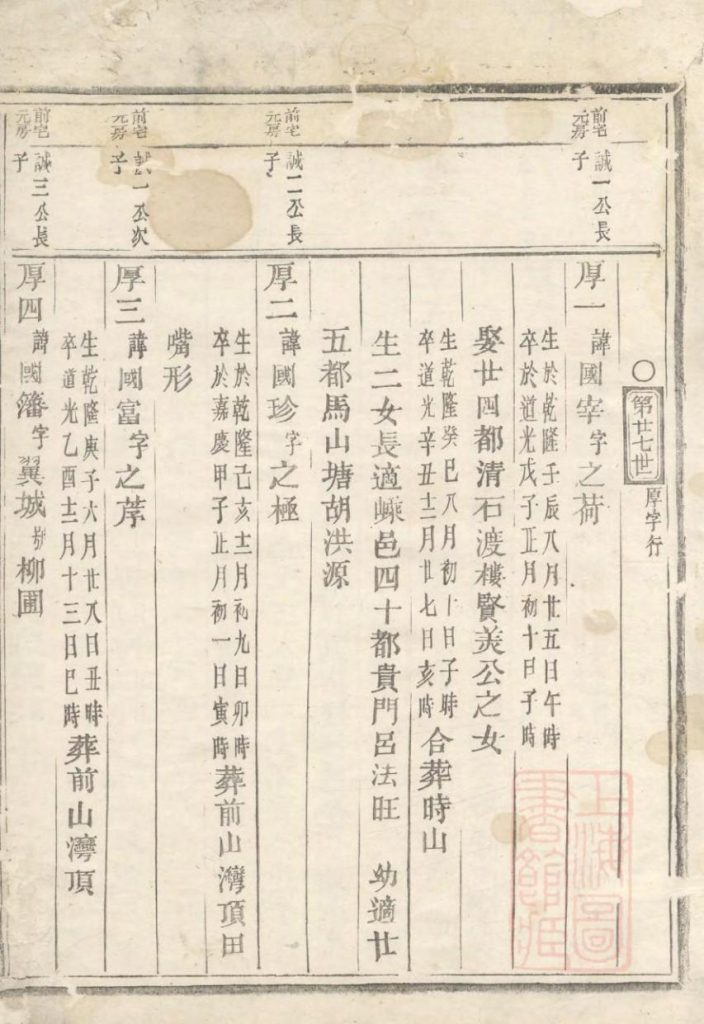 ○第廿七世 厚字行
前宅元房 誠一公長子
厚一 諱國宰字之荷
生於乾隆壬辰八月廿五日午時
卒於道光戊子正月初十日子時
娶廿四都清石渡樓賢美公之女
生乾隆癸巳八月初十日子時
卒道光辛丑十二月廿七日亥時
合葬時山
生二女長適嵊邑四十都貴門呂法旺 幼適廿
五都馬山塘胡洪源
前宅元房 誠二公長子
厚二 諱國珍字之極
生於乾隆己亥十二月初九日卯時
卒於嘉慶甲子正月初一日寅時
葬前山灣頂田
嘴形
前宅元房 誠一公次子
厚三 諱國富字之荐
生乾隆庚子六月廿八日丑時
卒道光乙酉十二月十三日巳時
葬前山灣頂
前宅元房 誠三公長子
厚四 諱國藩字翼城號柳圃
上海圖書館藏